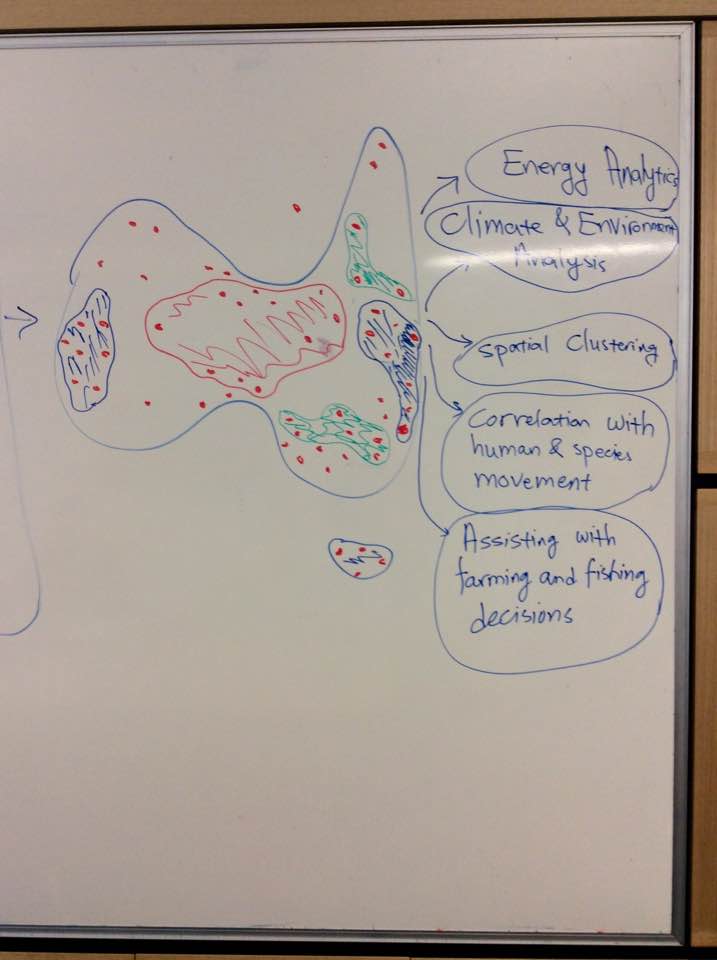 Energy Analytics
Climate & Environment
Analysis
Spatial Clustering
Correlation with
human & species
movement
Assisting with
farming and fishing
decisions